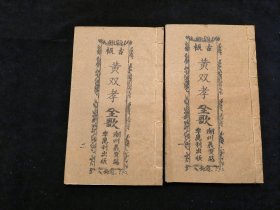 古板
黄双孝
全歌
潮州義安路
李萬利出版
古板
黄双孝
全歌
潮州義安路
李萬利出版